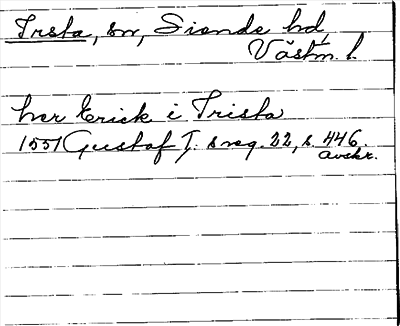 Irsta, sn, Siende hd,
Västm. l.
her Erick i Irista
1551 Gustaf I: s reg. 22, s. 446.
avskr.